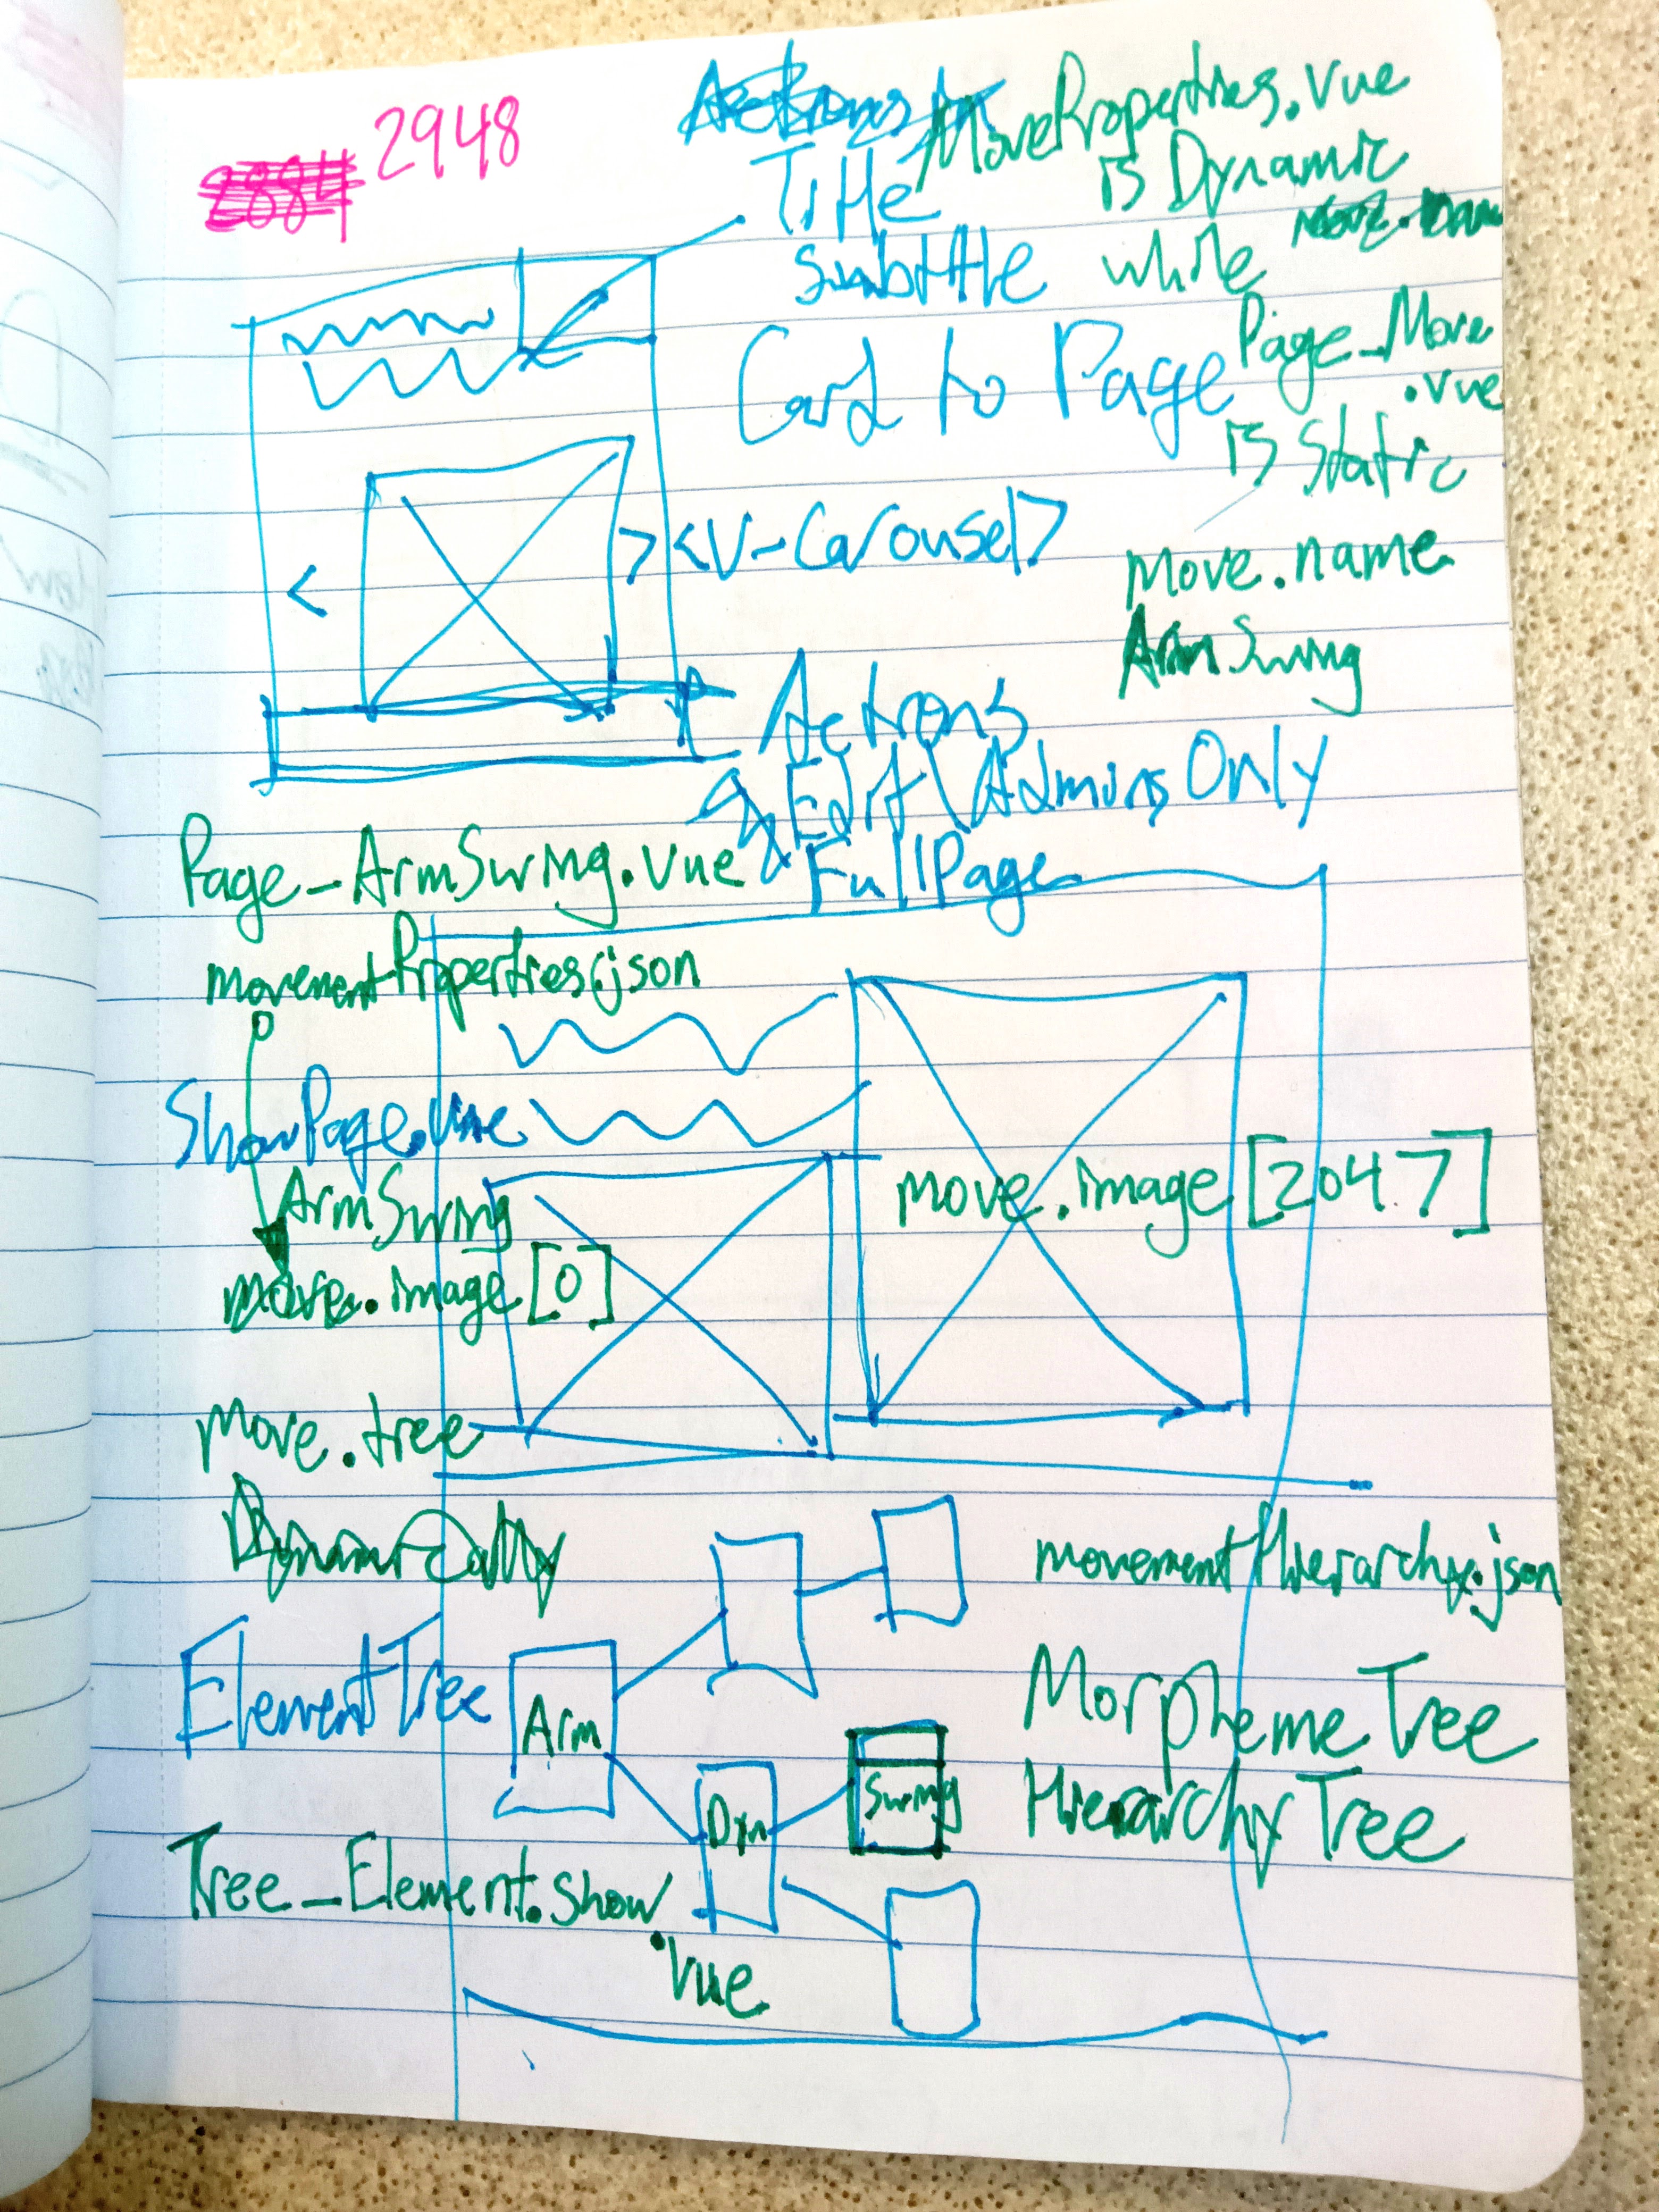 2948
MoveProperties.vue
is Dynamic
while
Page_Move
.vue
is Static
Title
subtitle
Card to Page
<V-Carousel>
move.name
ArmSwing
Actions
Edit \ Admins Only
FullPage
Page_ArmSwing.vue
movementProperties.json
ShowPage.vue
ArmSwing
move.image[0]
move.image[2047]
move.tree
Dynamically
movementHierarchy.json
ElementTree
Arm
Dyn
Swing
MorphemeTree
HierarchyTree
Tree_Element.show
.vue